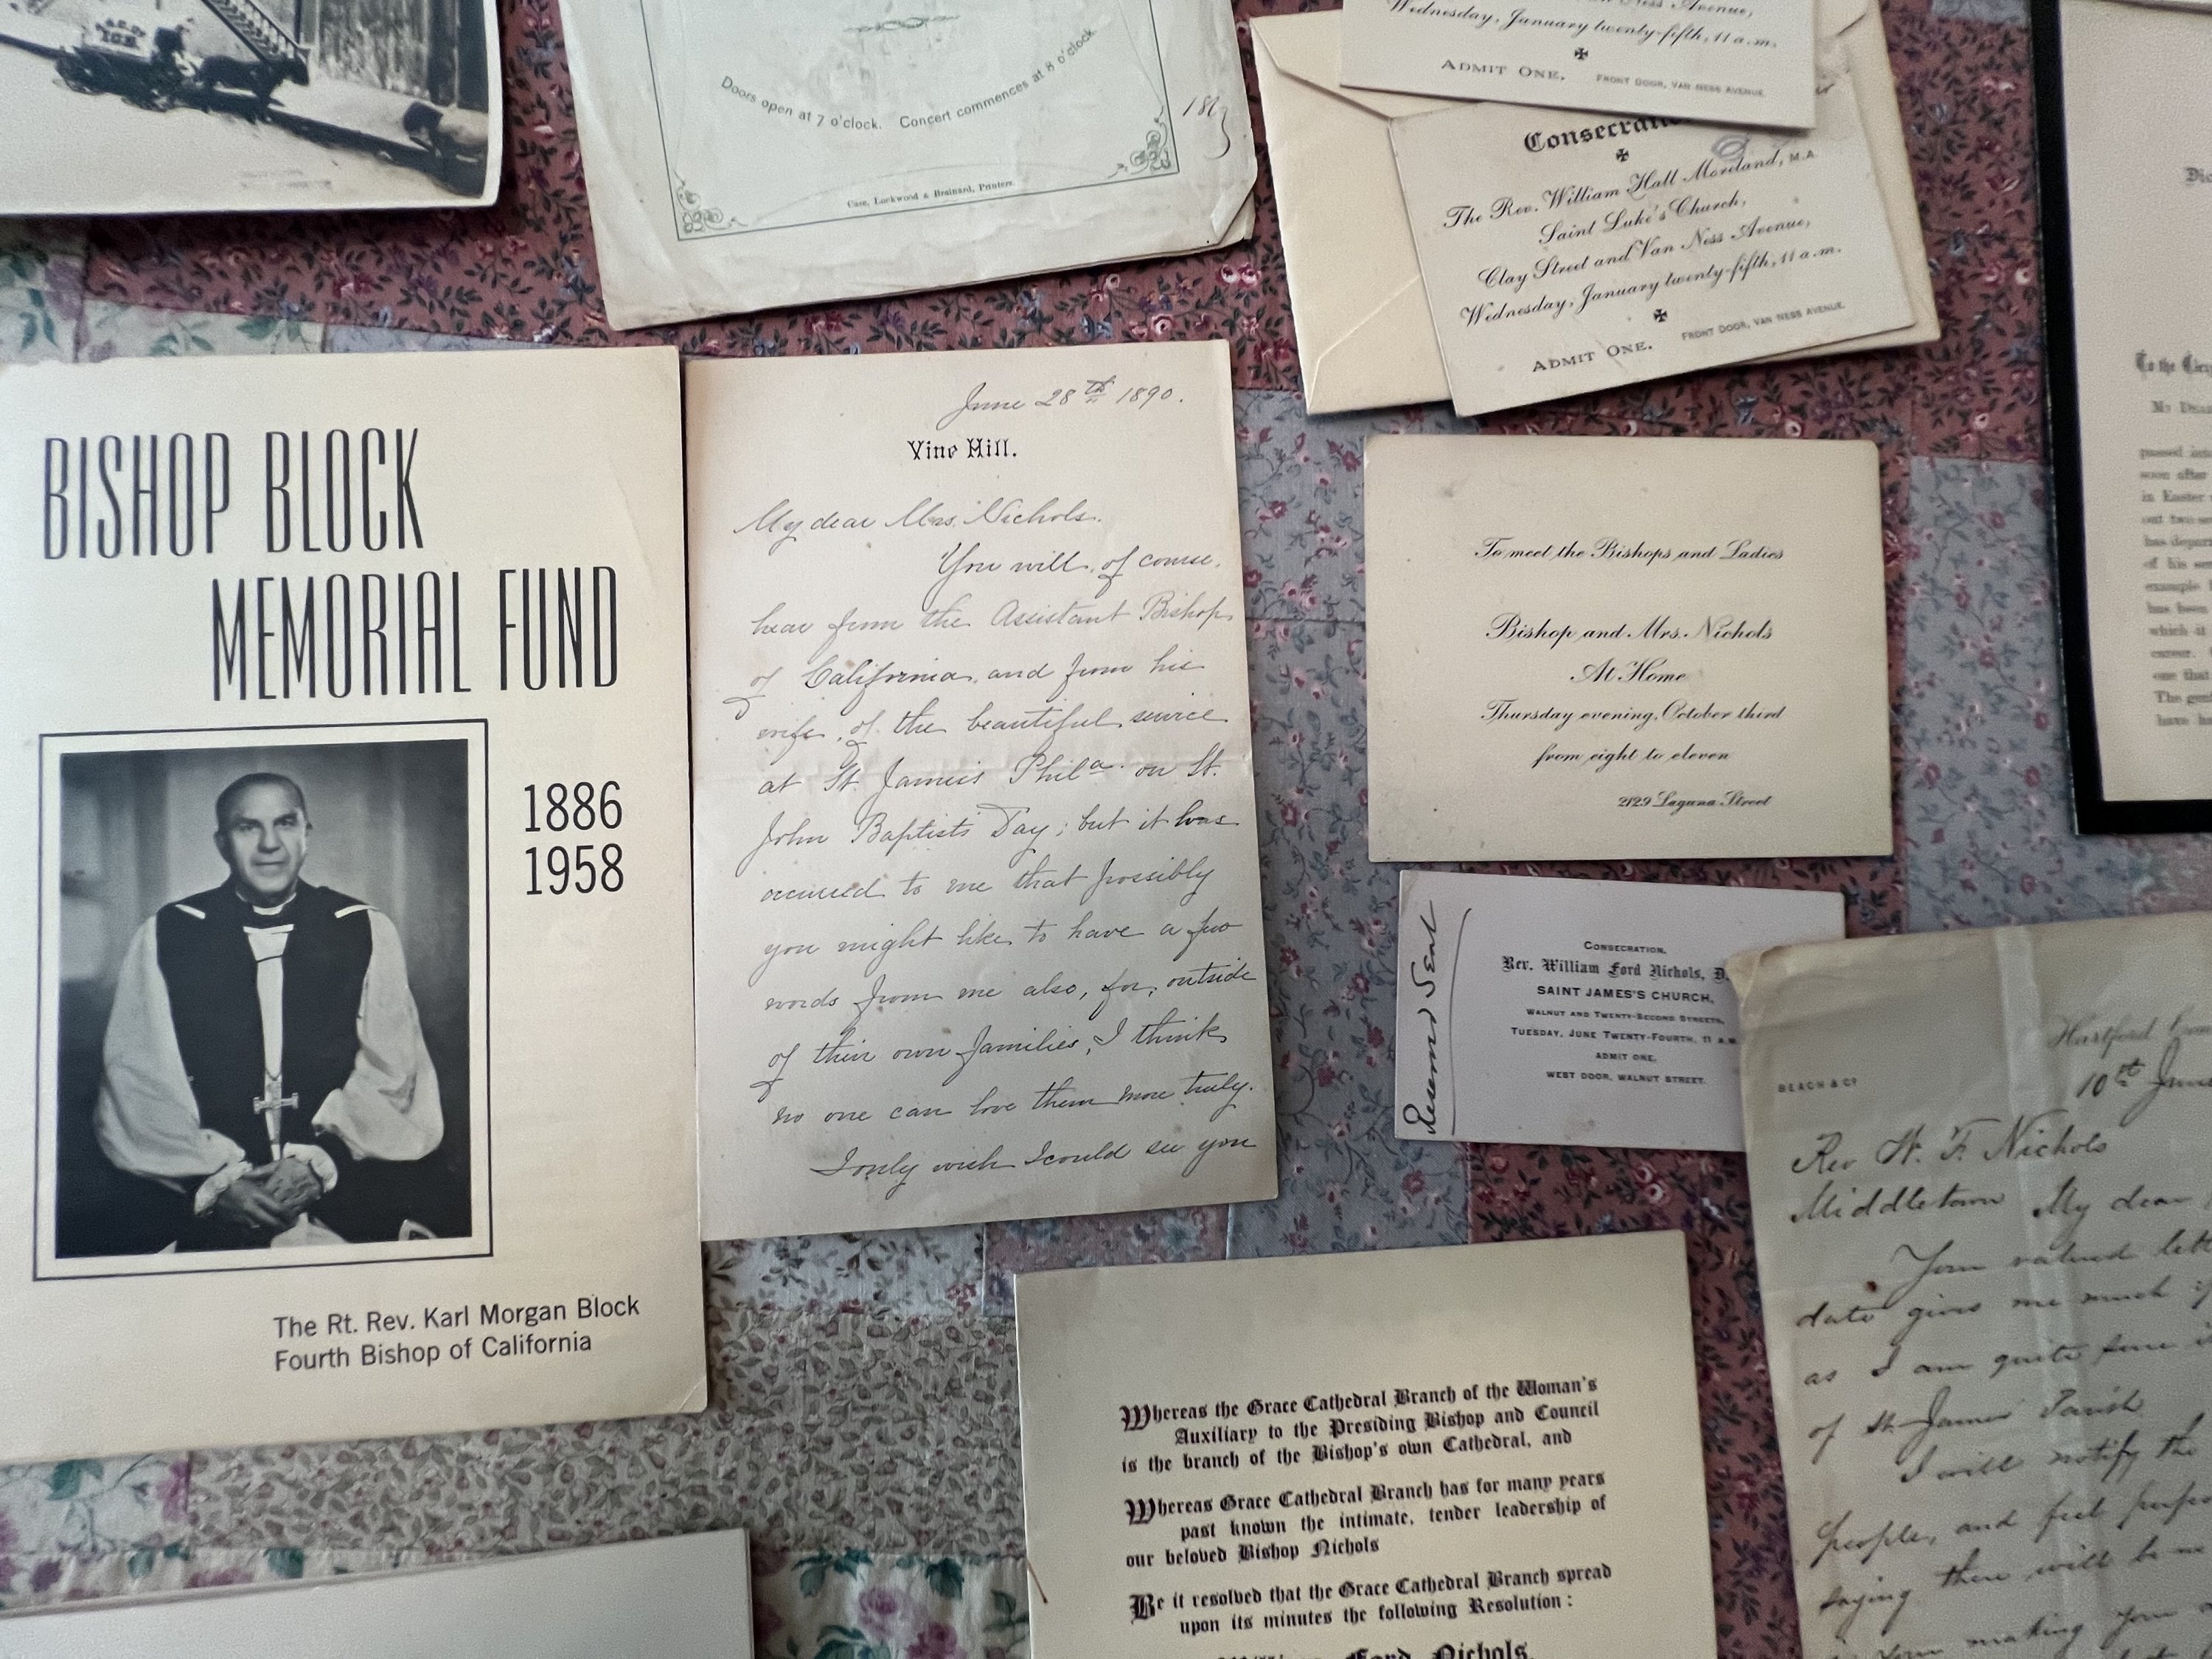 Doors open at 7 o'clock. Concert commences at 8 o'clock.
Case, Lockwood & Brainard, Printers.
Ness Avenue,
Wednesday, January twenty-fifth, 11 a.m.
ADMIT ONE.
FRONT DOOR, VAN NESS AVENUE.
The Rev. William Hall Moreland, M.A.
Saint Luke's Church,
Clay Street and Van Ness Avenue,
Wednesday, January twenty-fifth, 11 a.m.
ADMIT ONE.
FRONT DOOR, VAN NESS AVENUE.
BISHOP BLOCK
MEMORIAL FUND
1886
1958
The Rt. Rev. Karl Morgan Block
Fourth Bishop of California
June 28th 1890.
Vine Hill.
My dear Mrs. Nichols.
You will, of course,
hear from the Assistant Bishop
of California, and from his
wife, of the beautiful service
at St. James's Phila. on St.
John Baptist's Day; but it has
occurred to me that possibly
you might like to have a few
words from me also, for, outside
of their own families, I think
no one can love them more truly.
I only wish I could see you
To meet the Bishops and Ladies
Bishop and Mrs. Nichols
At Home
Thursday evening, October third
from eight to eleven
2129 Laguna Street
Reserved Seat
CONSECRATION,
Rev. William Ford Nichols, D.
SAINT JAMES'S CHURCH,
WALNUT AND TWENTY-SECOND STREETS,
TUESDAY, JUNE TWENTY-FOURTH, 11 A.M.
ADMIT ONE.
WEST DOOR, WALNUT STREET.
Whereas the Grace Cathedral Branch of the Woman's
Auxiliary to the Presiding Bishop and Council
is the branch of the Bishop's own Cathedral, and
Whereas Grace Cathedral Branch has for many years
past known the intimate, tender leadership of
our beloved Bishop Nichols
Be it resolved that the Grace Cathedral Branch spread
upon its minutes the following Resolution:
Ford Nichols,
BEACH & CO
Hartford
10th June
Rev W. F. Nichols
Middletown My dear
Your valued
date gives me much
as I am quite sure
of St James Parish
I will notify the
people, and feel
saying there will be no
making your
To the
My Dear
passed into
soon after
in Easter
out two
has
of his
example
has been
which it
career.
one that
The
have